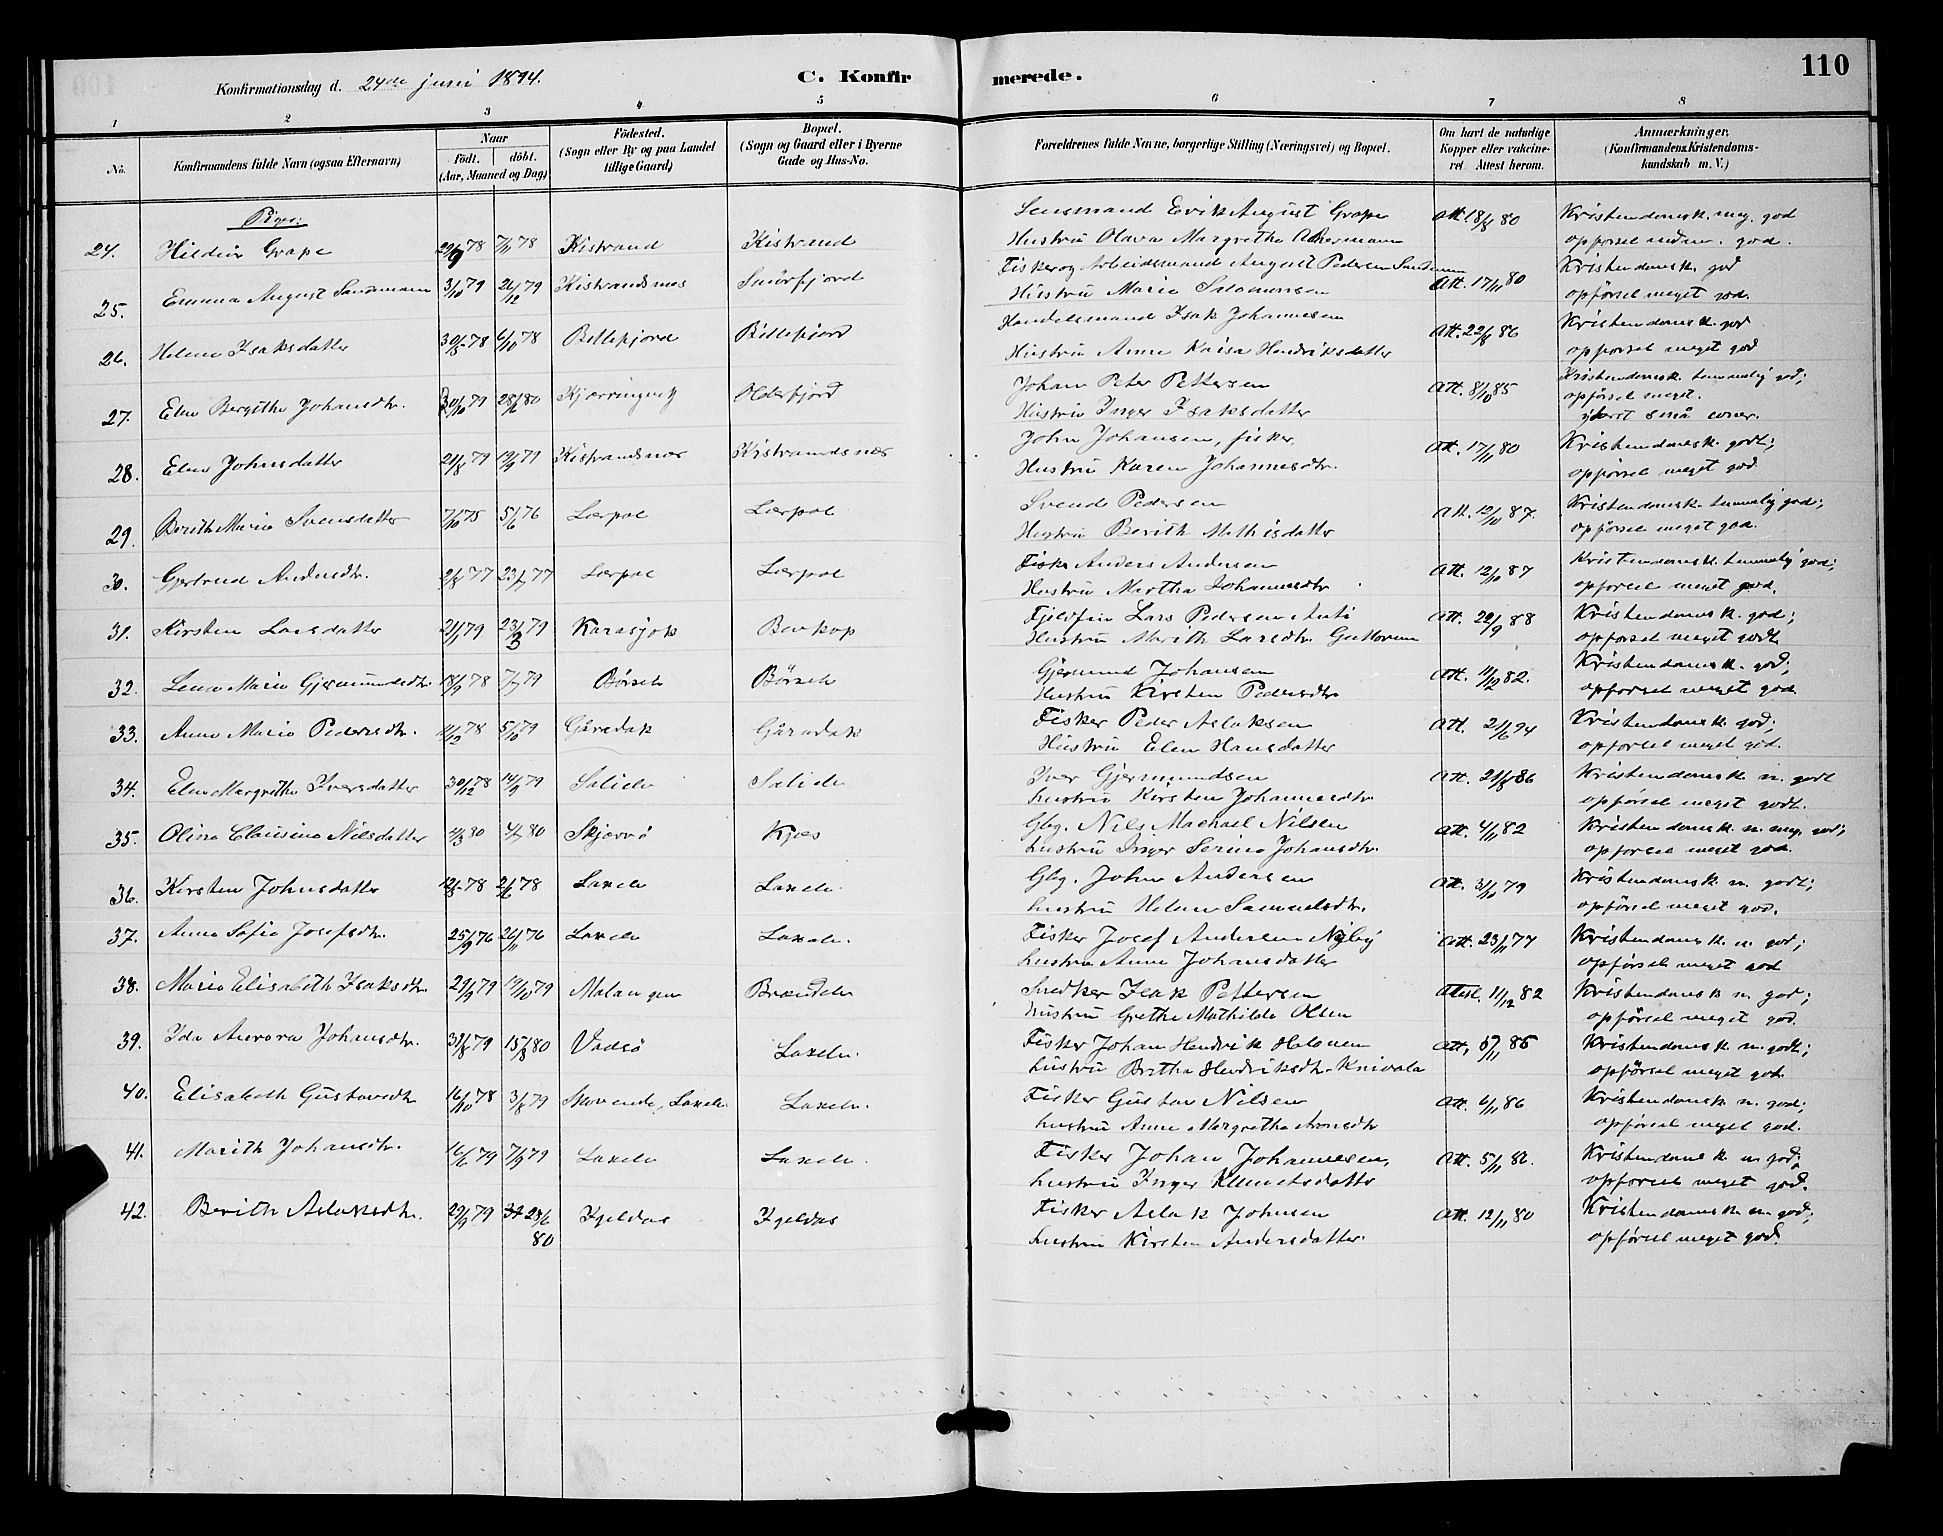 110
Konfirmationsdag d. 24de juni 1894. C. Konfirmerede.
1 2 3 4 5 6 7 8
No. Konfirmandens fulde Navn (ogsaa Efternavn) Naar födt. döbt. (Aar, Maaned og Dag) Födested. (Sogn eller By og paa Landet tillige Gaard) Bopæl. (Sogn og Gaard eller i Byerne Gade og Hus-No. Forældrenes fulde Navne, borgerlige Stilling (Næringsvei) og Bopæl. Om havt de naturlige Kopper eller vakcineret Attest herom. Anmærkninger. (Konfirmandens Kristendomskundskab m. V.)
Piger:
24. Hildur Grape 29/9 78 7/11 78 Kistrand Kistrand Lensmand Erik August Grape Att. 18/8 80 Kristendomsk. meg. god
Hustru Olava Margrethe Akermann opførsel god.
25. Emma August Sandmann 3/10 79 26/12 79 Kistrandsnes Smörfjord Fisker og Arbeidsmand August Pedersen Att. 17/11 80 Kristendomsk. god
Hustru Marie Salomonsen opførsel meget god.
26. Helene Isaksdatter 30/5 78 6/10 78 Billefjord Billefjord Handelsmand Isak Johannesen Att. 22/8 86 Kristendomsk. god
Hustru Anne Kaisa Hendriksdatter opførsel meget god
27. Elen Bergithe Johansdtr. 30/10 79 28/6 80 Olderfjord Johan Peter Pettersen Att. 8/10 85 Kristendomsk. temmelig god;
Hustru Inger Isaksdatter opførsel meget.
små evner.
28. Elen Johnsdatter 21/8 79 14/9 79 Kistrandsnes Kistrandsnes John Johansen, fisker Att. 17/11 80 Kristendomsk. godt;
Hustru Karen Johannesdtr. opførsel meget god
29. Berith Marie Svensdatter 7/10 75 5/6 76 Lærpol Lærpol Svend Pedersen Att. 12/10 87. Kristendomsk. temmelig god;
Hustru Berith Mathisdatter opførsel meget god.
30. Gjertrud Andersdtr. 2/8 77 Lærpol Lærpol Fisker Anders Andersen Att. 12/10 87 Kristendomsk. temmelig god;
Hustru Martha Johannesdtr opførsel meget god.
31. Kirsten Larsdatter 21/1 79 23/3 79 Karasjok Bevkop Fjeldfin Lars Pedersen Anti Att. 22/9 88 Kristendomsk. god;
Hustru Marith Larsdtr. Guttorm opførsel meget godt
32. Lena Marie Gjermundsdtr. 18/9 78 7/7 79 Børsele Börsele Gjermund Johansen Att. 11/12 82. Kristendomsk. god;
Hustru Kirsten Pedersdtr opførsel meget god
33. Anne Marie Pedersdtr. 11/12 78 5/10 79 Gåradak Gåradak Fisker Peder Aslaksen Att. 21/6 94 Kristendomsk. god;
Hustru Elen Hansdatter opførsel meget god.
34. Elen Margrethe Iversdatter 30/12 78 14/9 79 Iver Gjermundsen Att. 21/8 86 Kristendomsk. m. godt
hustru Kirsten Johannesdtr opførsel meget godt.
35. Olina Clausina Nilsdatter 80 80 Skjærvö Kjæs Gbg. Nils Machael Nilsen Att. 4/11 82 Kristendomsk. m. god;
hustru Inger Serina Johansdtr. opførsel meget god.
36. Kirsten Johnsdatter 78 2/6 78 Laxelv Laxelv. Gbg. John Andersen Att. 31/10 79 Kristendomsk. m. godt;
hustru Helene Samuelsdtr. opførsel meget god.
37. Anna Sofie Josefsdtr. 25/9 76 26/11 76 Laxelv Laxelv. Fisker Josef Andersen Niby Att. 23/11 77 Kristendomsk. m. god;
hustru Anne Johansdatter opførsel meget god
38. Marie Elisabeth Isaksdtr. 29/9 79 19/10 79 Malangen Brændelv Snedker Isak Pettersen Attest. 11/12 82 Kristendomsk m. god;
hustru Grethe Mathilde Olsen opførsel meget god.
39. Ida Aurora Johansdtr. 31/8 79 15/8 80 Vadsö Laxelv. Fisker Johan Hendrik Halonen Att. 85 Kristendomsk m. godt;
hustru Britha Hendriksdtr. Knivala opførsel meget god.
40. Elisabeth Gustavsdtr 16/10 78 3/8 79 Skovende, Laxelv Laxelv. Fisker Gustav Nilsen Att. 6/11 86 Kristendomsk m. god;
hustru Anne Margretha Aronsdtr opførsel meget god.
41. Marith Johansdtr. 16/6 79 7/9 79 Laxelv Laxelv. Fisker Johan Johannesen, Att. 5/11 86. Kristendomsk m god;
hustru Inger Klemetsdatter opførsel meget god.
42. Berith Aslaksdtr. 29/9 79 23/6 80 Igeldas Igeldas Fisker Aslak Johnsen Att. 12/11 80 Kristendomsk m. god;
hustru Kirsten Andersdatter. opførsel meget god.